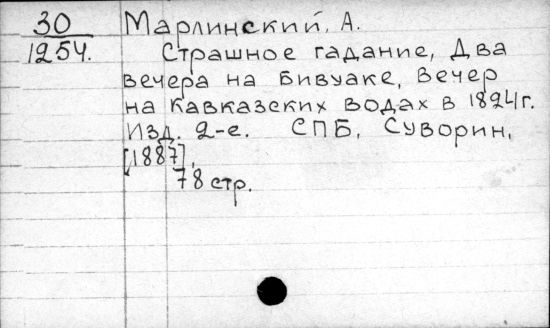 30 Марлинский, А.
1254. Страшное гадание, Два
вечера на бивуаке, Вечер
на Кавказских водах в 1824 г.
Изд. 2-е. СПБ, Суворин,
[1887].
78 стр.